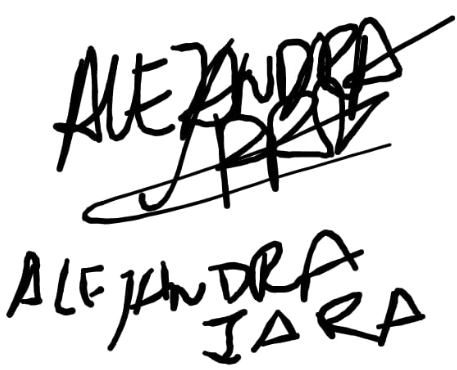 ALEJANDRA
ALEJANDRA
JARA